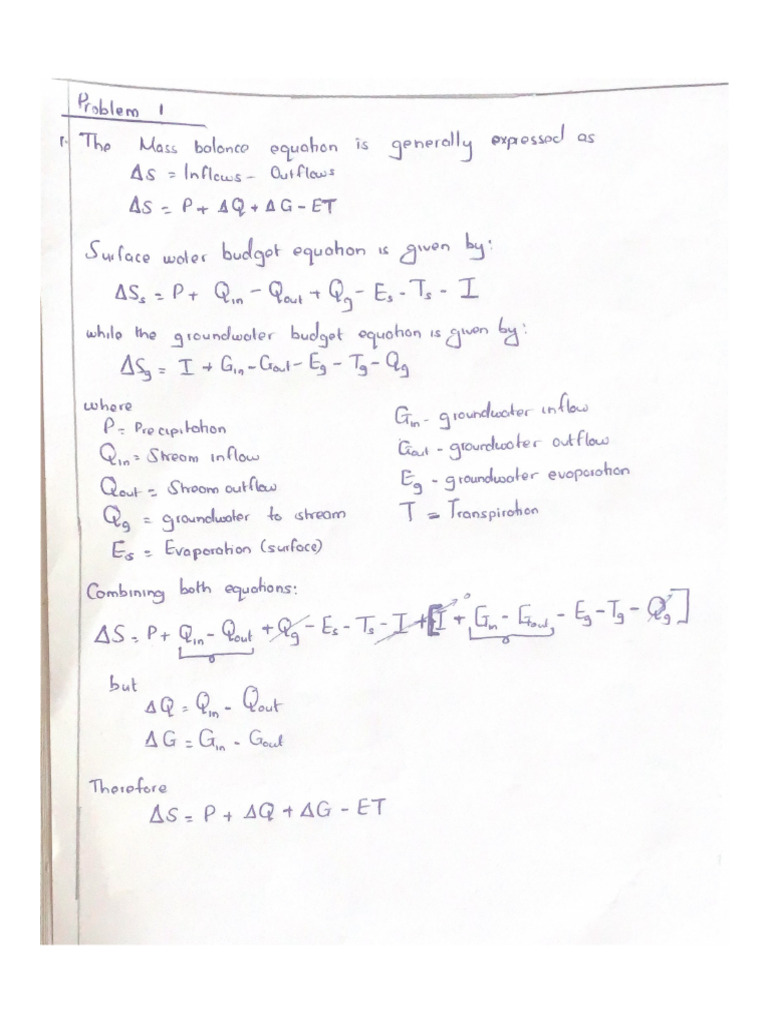 Problem 1
1. The Mass balance equation is generally expressed as
ΔS = Inflows - Outflows
ΔS = P + ΔQ + ΔG - ET
Surface water budget equation is given by:
ΔSs = P + Qin - Qout + Qg - Es - Ts - I
while the groundwater budget equation is given by:
ΔSg = I + Gin - Gout - Eg - Tg - Qg
where
P = Precipitation
Qin = Stream inflow
Qout = Stream outflow
Qg = groundwater to stream
Es = Evaporation (surface)
Gin - groundwater inflow
Gout - groundwater outflow
Eg - groundwater evaporation
T = Transpiration
Combining both equations:
ΔS = P + Qin - Qout + Qg - Es - Ts - I + [I + Gin - Gout - Eg - Tg - Qg]
but
ΔQ = Qin - Qout
ΔG = Gin - Gout
Therefore
ΔS = P + ΔQ + ΔG - ET